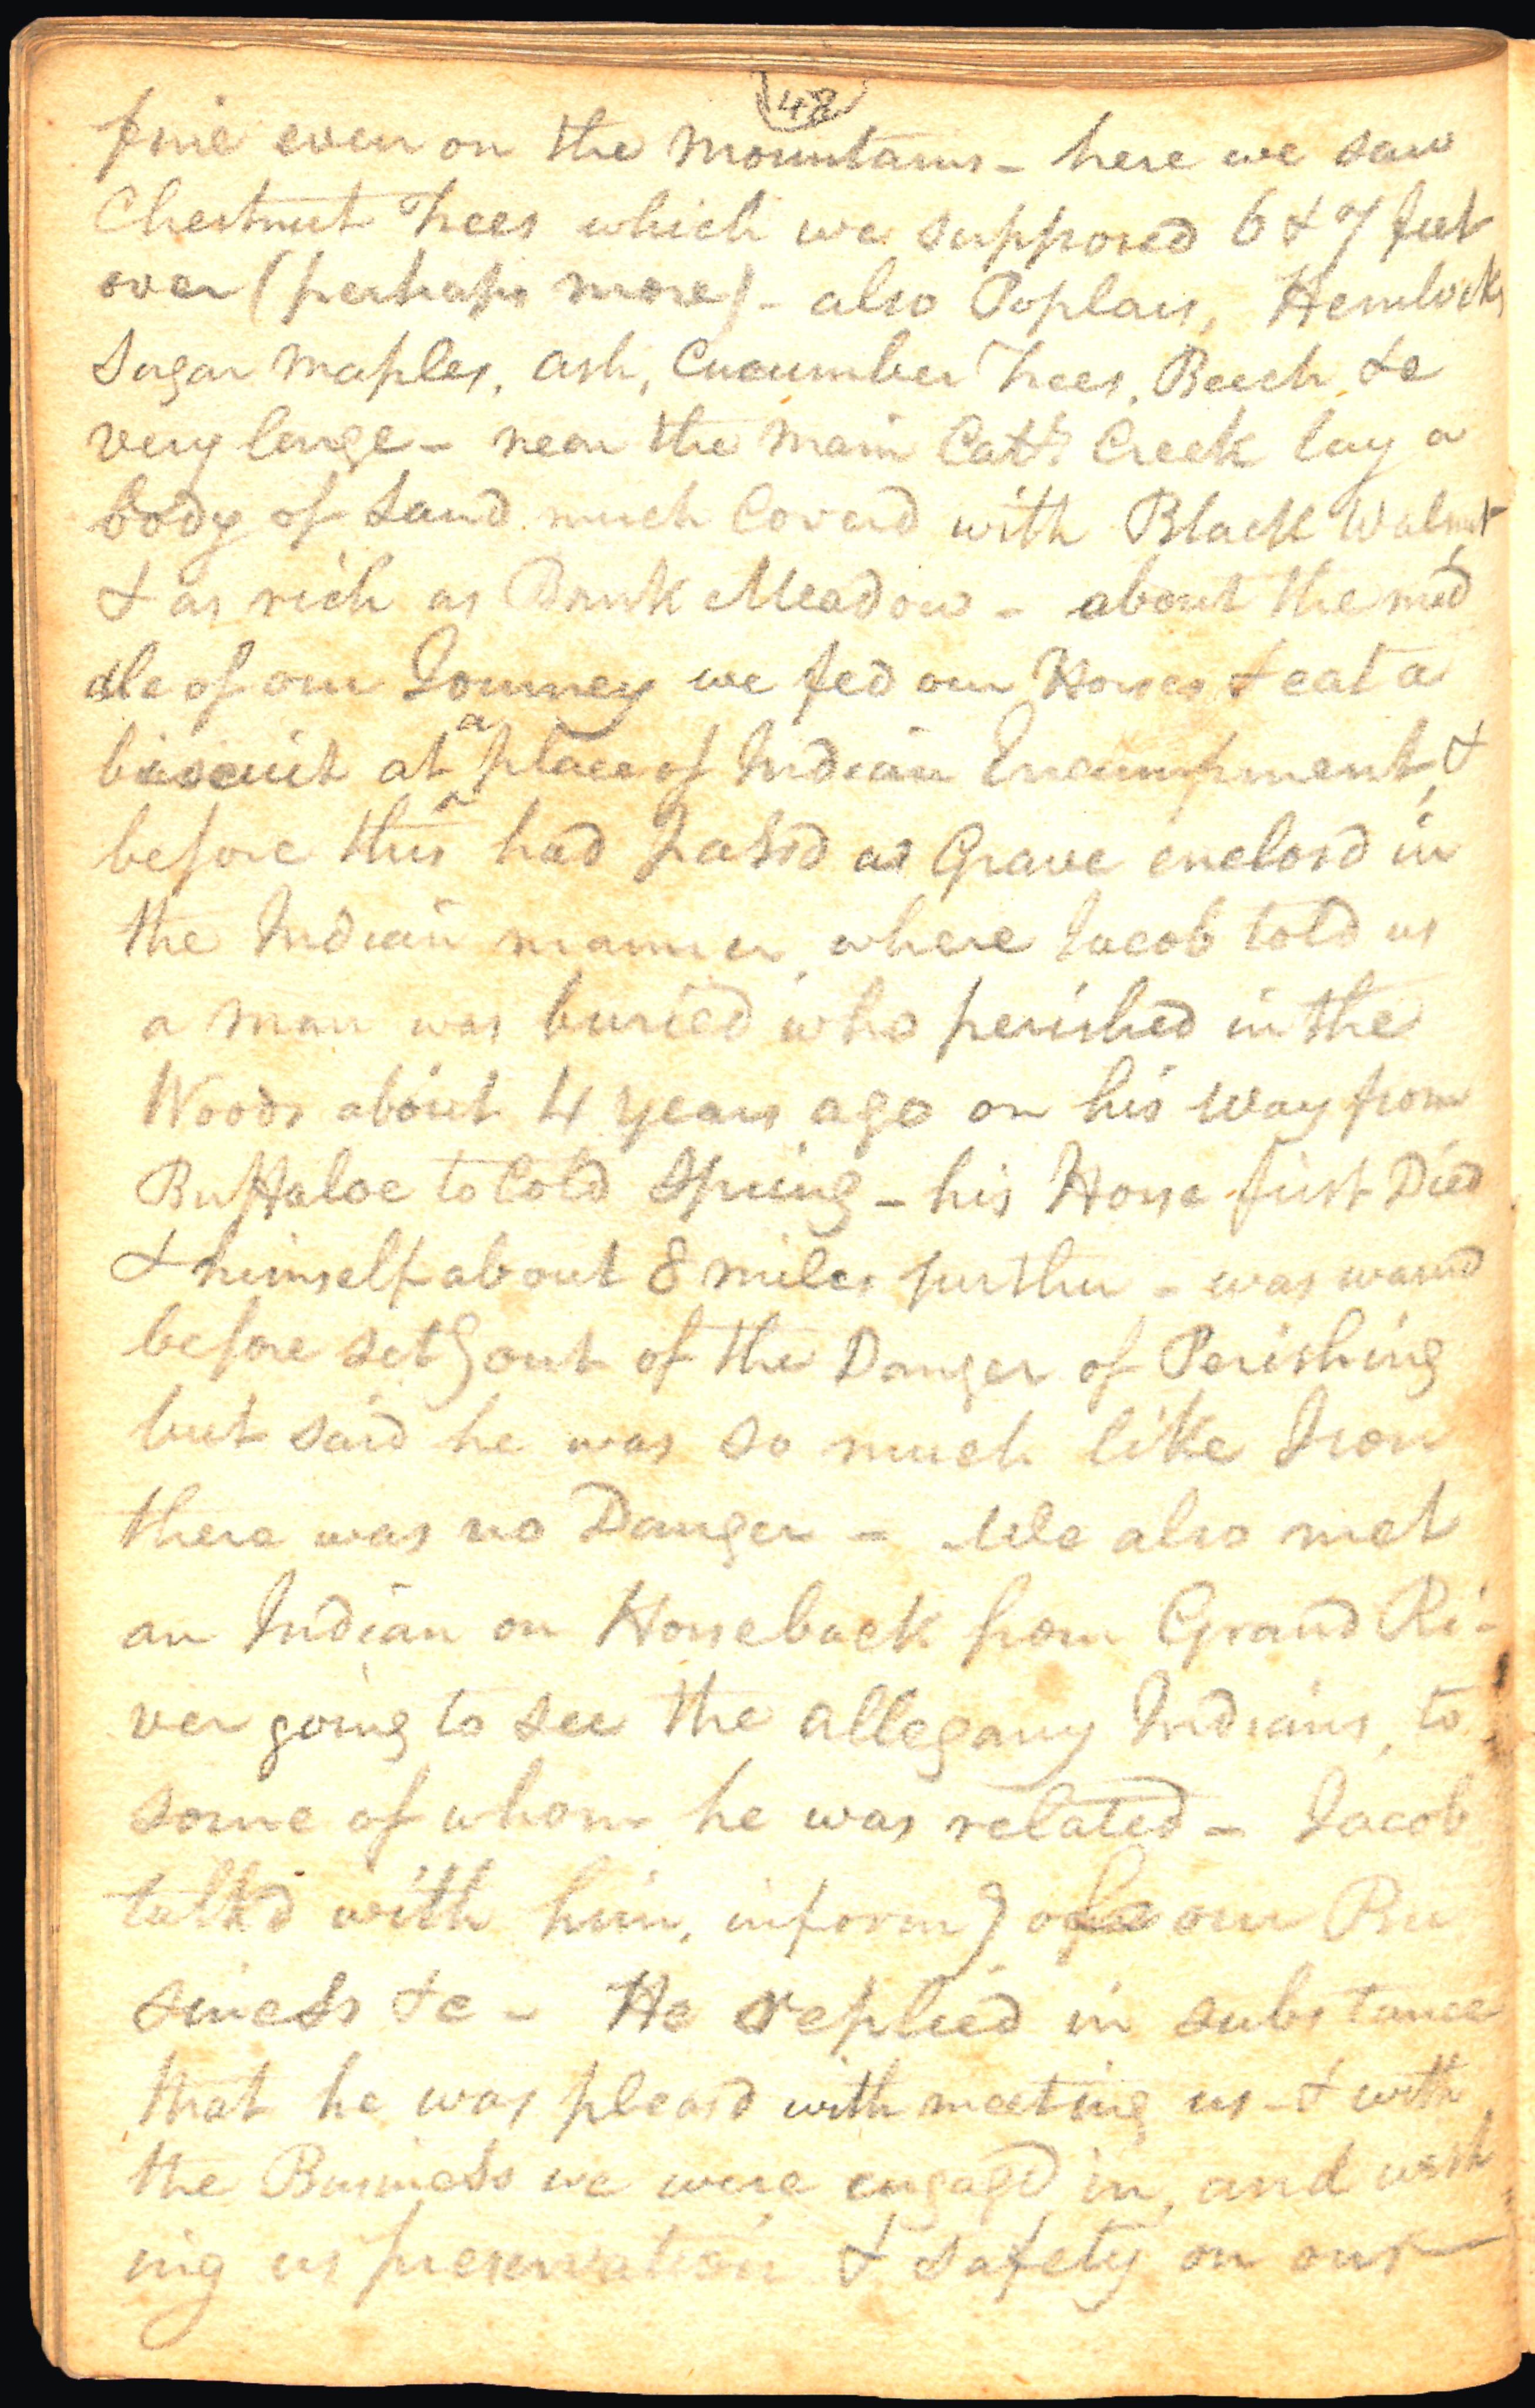 48
fine even on the mountains - here we saw
Chestnut Trees which we supposed 6 & 7 feet
over (perhaps more) - also Poplars, Hemlocks
Sugar maples, ash, Cucumber Trees, Beech &c
very large - near the main Catt. Creek lay a
body of Land much Coverd with Black Walnut
& as rich as Bank Meadow - about the mid
dle of our Journey we fed our Horses & eat a
biscuit at a place of Indian Encampment, &
before this had passd a Grave enclosd in
the Indian manner, where Jacob told us
a man was buried who perished in the
Woods about 4 years ago on his way from
Buffaloe to Cold Spring - his Horse first Died
& himself about 8 miles further - was warnd
before setg out of the Danger of Perishing
but said he was so much like Iron
there was no Danger - We also met
an Indian on Horseback from Grand Ri-
ver going to see the allegany Indians, to
some of whom he was related - Jacob
talkd with him, informg of our Bu
siness &c - He replied in substance
that he was pleasd with meeting us - & with
the Business we were engagd in, and wish
ing us preservation & safety on our